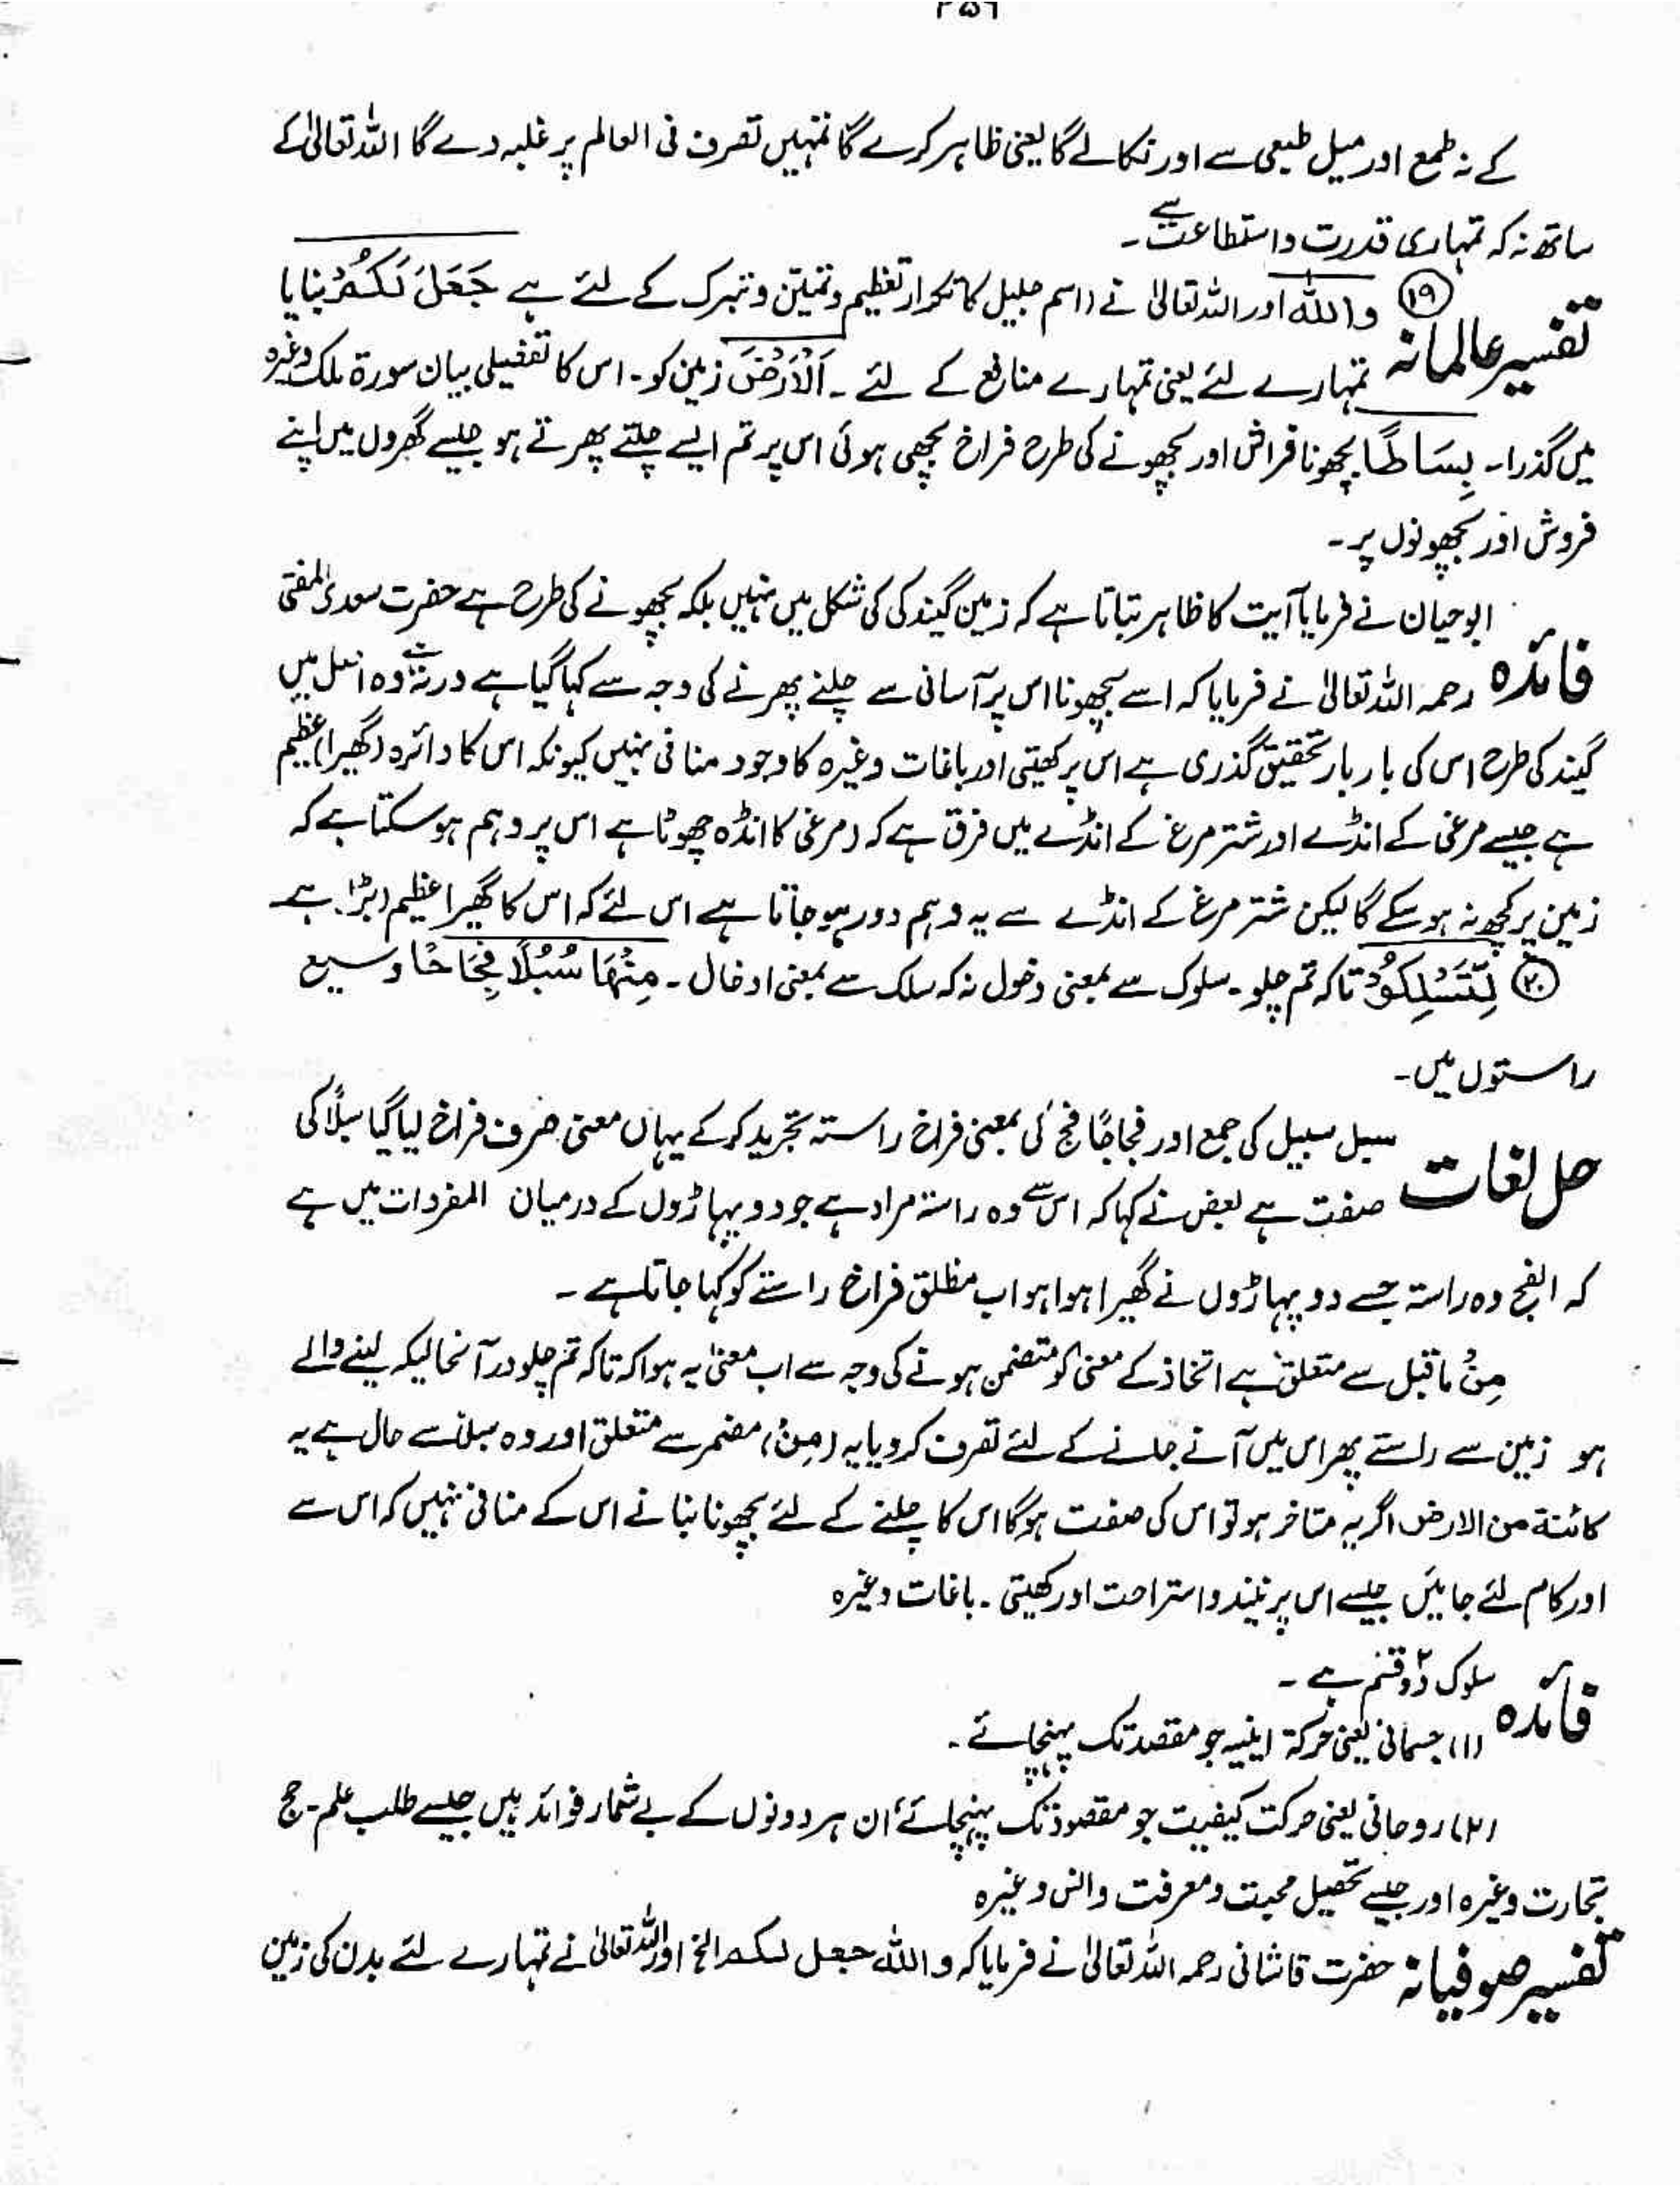 ۲۵۶
کے نہ طمع اور میل طبعی سے اور نکالے گا یعنی ظاہر کرے گا تمہیں تصرف فی العالم پر غلبہ دے گا اللہ تعالیٰ کے
ساتھ نہ کہ تمہاری قدرت و استطاعت سے ۔
تفسیر عالمانہ ⑲ وَاللّٰہُ اور اللہ تعالیٰ نے (اسم جلیل کا تکرار تعظیم و تیمن و تبرک کے لئے ہے جَعَلَ لَکُمُ بنایا
تمہارے لئے یعنی تمہارے منافع کے لئے ۔ اَلْاَرْضَ زمین کو ۔ اس کا تفصیلی بیان سورۃ ملک وغیرہ
میں گذرا ۔ بِسَاطًا بچھونا فراش اور بچھونے کی طرح فراخ بچھی ہوئی اس پر تم ایسے چلتے پھرتے ہو جیسے گھروں میں اپنے
فروش اور بچھونوں پر ۔
ابو حیان نے فرمایا آیت کا ظاہر بتاتا ہے کہ زمین گیند کی کی شکل میں نہیں بلکہ بچھونے کی طرح ہے حضرت سعدی المفتی
فائدہ رحمہ اللہ تعالیٰ نے فرمایا کہ اسے بچھونا اس پر آسانی سے چلنے پھرنے کی وجہ سے کہا گیا ہے ورنہ وہ اصل میں
گیند کی طرح اس کی بار بار تحقیق گذری ہے اس پر کھیتی اور باغات وغیرہ کا وجود منافی نہیں کیونکہ اس کا دائرہ (گھیرا) عظیم
ہے جیسے مرغی کے انڈے اور شتر مرغ کے انڈے میں فرق ہے کہ (مرغی کا انڈہ چھوٹا ہے اس پر وہم ہو سکتا ہے کہ
زمین پر کچھ نہ ہو سکے گا لیکن شتر مرغ کے انڈے سے یہ وہم دور ہو جاتا ہے اس لئے کہ اس کا گھیرا عظیم (بڑا) ہے
⑳ لِّتَسْلُکُوْا تاکہ تم چلو ۔ سلوک سے بمعنی دخول نہ کہ سلک سے بمعنی ادخال ۔ مِنْہَا سُبُلًا فِجَاجًا وسیع
راستوں میں ۔
سبل سبیل کی جمع اور فجاجًا فج کی بمعنی فراخ راستہ تجرید کر کے یہاں معنی صرف فراخ لیا گیا سبلًا کی
حل لغات صفت ہے بعض نے کہا کہ اس سے وہ راستہ مراد ہے جو دو پہاڑوں کے درمیان المفردات میں ہے
کہ الفج وہ راستہ جسے دو پہاڑوں نے گھیرا ہوا ہو اب مطلق فراخ راستے کو کہا جاتا ہے ۔
مِنْ ماقبل سے متعلق ہے اتخاذ کے معنی کو متضمن ہونے کی وجہ سے اب معنیٰ یہ ہوا کہ تاکہ تم چلو درآنحالیکہ لینے والے
ہو زمین سے راستے پھر اس میں آنے جانے کے لئے تصرف کرو یا یہ (مِنْ) مضمر سے متعلق اور وہ سبلًا سے حال ہے یہ
کائنۃ من الارض اگر یہ متاخر ہو تو اس کی صفت ہوگا اس کا چلنے کے لئے بچھونا بنانے اس کے منافی نہیں کہ اس سے
اور کام لئے جائیں جیسے اس پر نیند و استراحت اور کھیتی ۔ باغات وغیرہ
سلوک دو۲ قسم ہے ۔
فائدہ (۱) جسمانی یعنی حرکۃ اینیہ جو مقصد تک پہنچائے ۔
(۲) روحانی یعنی حرکت کیفیت جو مقصود تک پہنچائے ان ہر دونوں کے بے شمار فوائد ہیں جیسے طلب علم ۔ حج
تجارت وغیرہ اور جیسے تحصیل محبت و معرفت و انس وغیرہ
تفسیر صوفیانہ حضرت قاشانی رحمہ اللہ تعالیٰ نے فرمایا کہ و اللہ جعل لکم الخ اور اللہ تعالیٰ نے تمہارے لئے بدن کی زمین